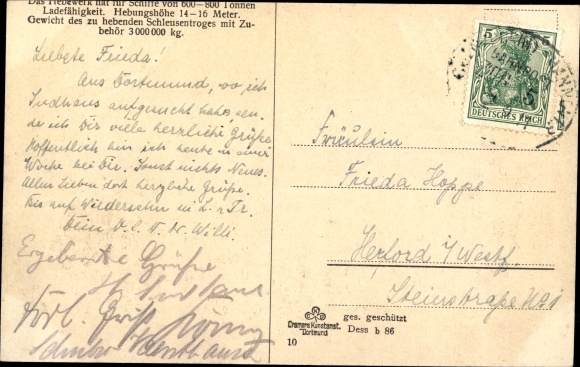 Das Hebewerk hat für Schiffe von 600—800 Tonnen
Ladefähigkeit. Hebungshöhe 14—16 Meter.
Gewicht des zu hebenden Schleusentroges mit Zu-
behör 3 000 000 kg.
Liebste Frieda!
Aus Dortmund, wo ich
Sudhaus aufgesucht habe, sen-
de ich Dir viele herzliche Grüße
Hoffentlich bin ich heute in einer
Woche bei Dir. Sonst nichts Neues.
Allen Lieben dort herzliche Grüße.
Bis auf Wiedersehn in L. n Tr.
Dein Willi.
Ergebenste Grüße
Gruß
5 5
DEUTSCHES REICH
BAHNPOST
Fräulein
Frieda Hoppe
Herford i/Westf.
Steinstraße No 1
Cramers Kunstanst.
Dortmund
ges. geschützt
Dess b 86
10